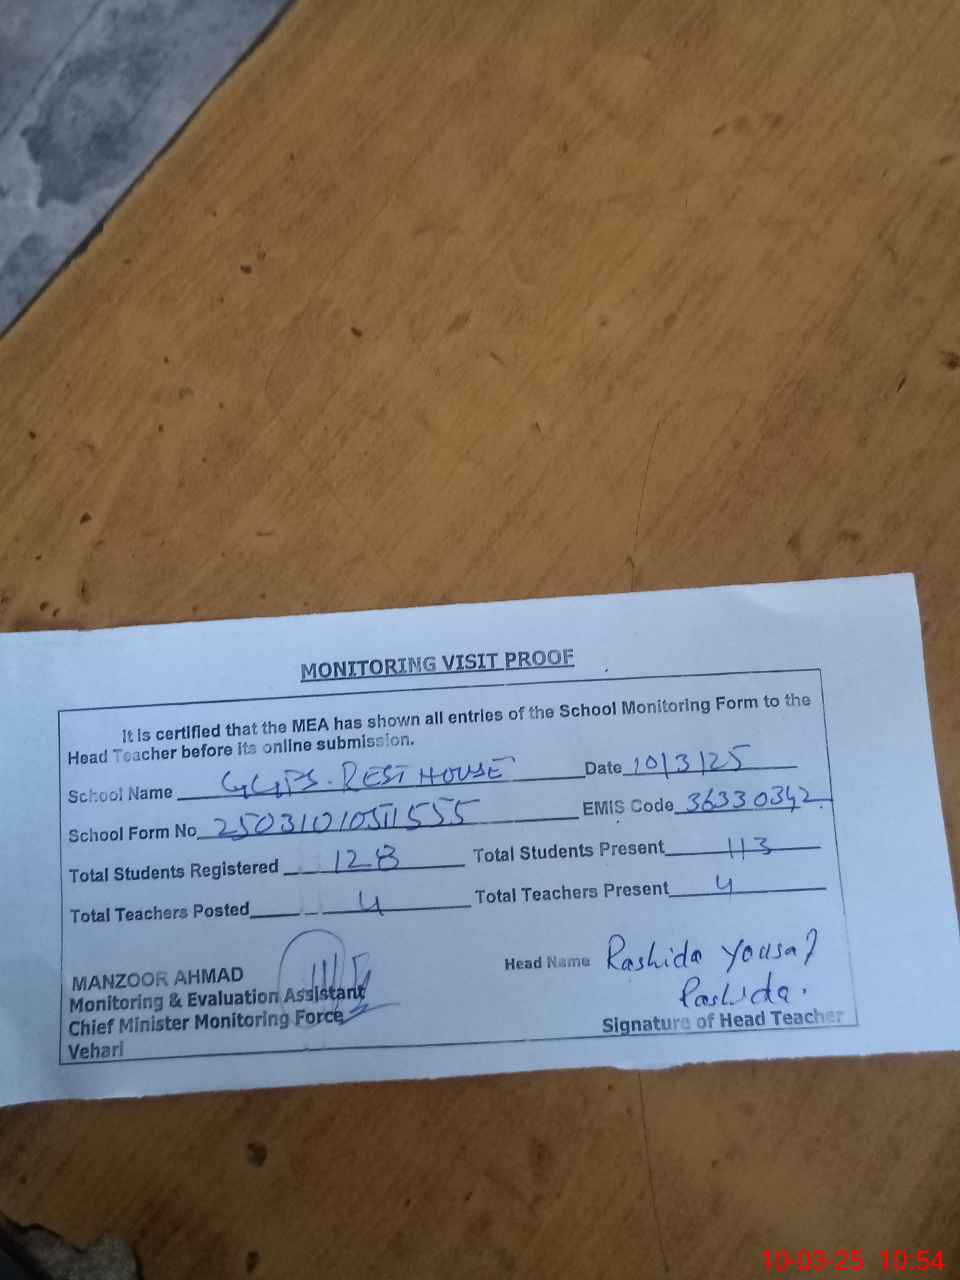 MONITORING VISIT PROOF
It is certified that the MEA has shown all entries of the School Monitoring Form to the
Head Teacher before its online submission.
School Name GGPS. REST HOUSE Date 10/3/25
School Form No 25031010511555 EMIS Code 36330342
Total Students Registered 128 Total Students Present 113
Total Teachers Posted 4 Total Teachers Present 4
MANZOOR AHMAD
Monitoring & Evaluation Assistant
Chief Minister Monitoring Force
Vehari
Head Name Rashida Yousaf
Rashida.
Signature of Head Teacher
10-03-25 10:54